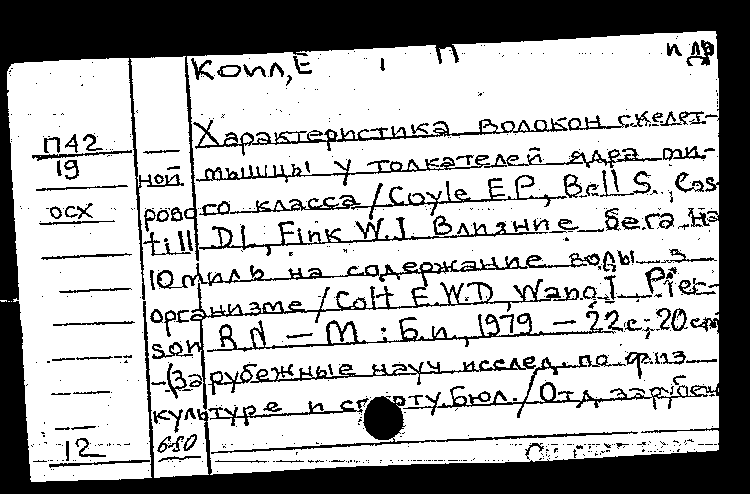 Коил, Е , П и др
П42
19
осх
Характеристика волокон скелет-
ной мышцы у толкателей ядра ми-
рового класса / Coyle E.P., Bell S., Cos-
till D.L., Fink W.J. Влияние бега на
10 миль на содержание воды в
организме / Colt E.W.D, Wang J., Pier-
son R.N. — М. : Б.и., 1979. — 22 с; 20 см
-(Зарубежные науч исслед. по физ
культуре и спорту. Бюл. / Отд. зарубеж
12
680